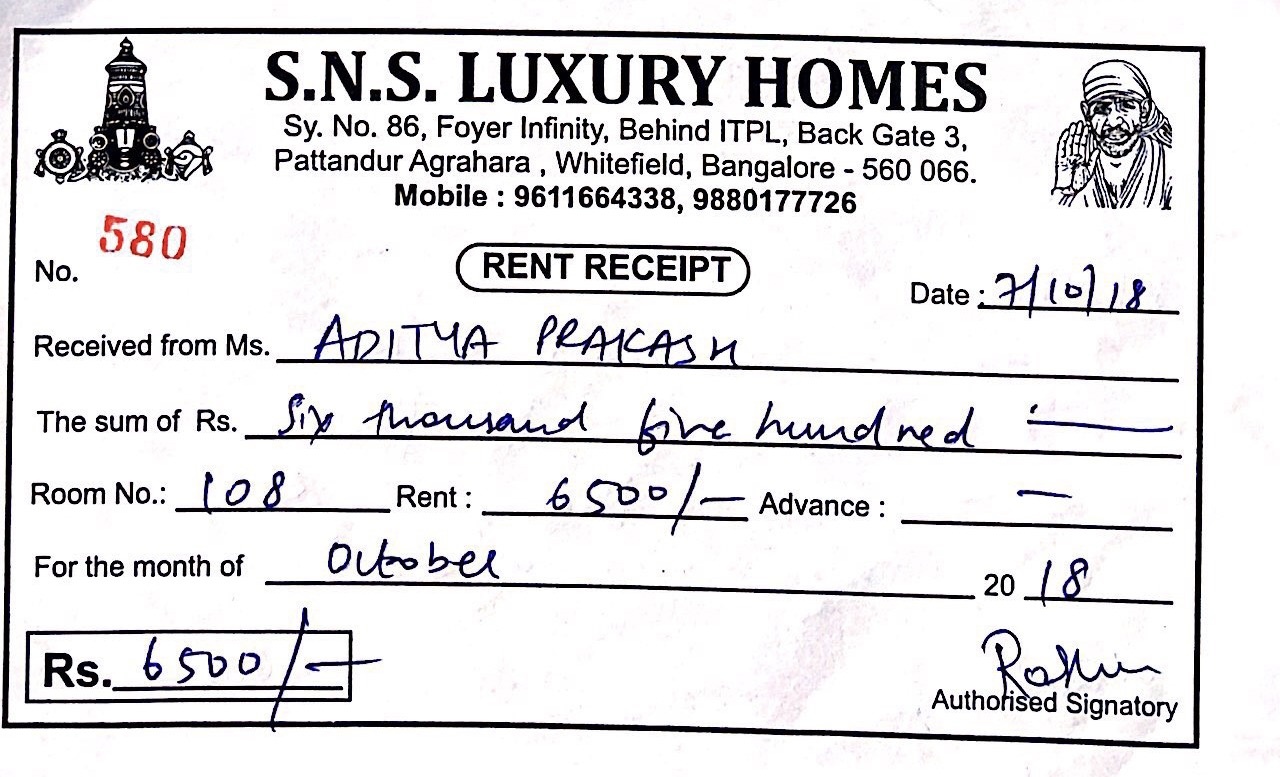 S.N.S. LUXURY HOMES
Sy. No. 86, Foyer Infinity, Behind ITPL, Back Gate 3,
Pattandur Agrahara , Whitefield, Bangalore - 560 066.
Mobile : 9611664338, 9880177726
No. 580
RENT RECEIPT
Date : 7/10/18
Received from Ms. ADITYA PRAKASH
The sum of Rs. Six thousand five hundred
Room No.: 108 Rent : 6500/- Advance : —
For the month of October 2018
Rs. 6500/-
Authorised Signatory